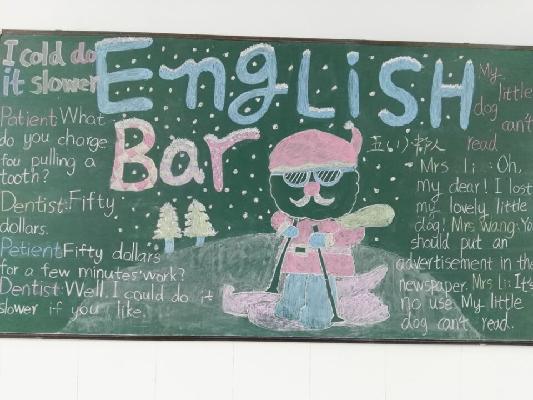 I cold do
it slower
EngLiSH
Bar
Patient What
do you charge
fou pulling a
tooth?
Dentist: Fifty
dollars.
Patient Fifty dollars
for a few minutes' work?
Dentist: Well. I could do it
slower if you like.
My
little
dog
can't
read
五(1)
Mrs li: Oh,
my dear! I lost
my lovely little
dog! Mrs Wang: You
should put an
advertisement in the
newspaper. Mrs Li: It's
no use My little
dog can't read.